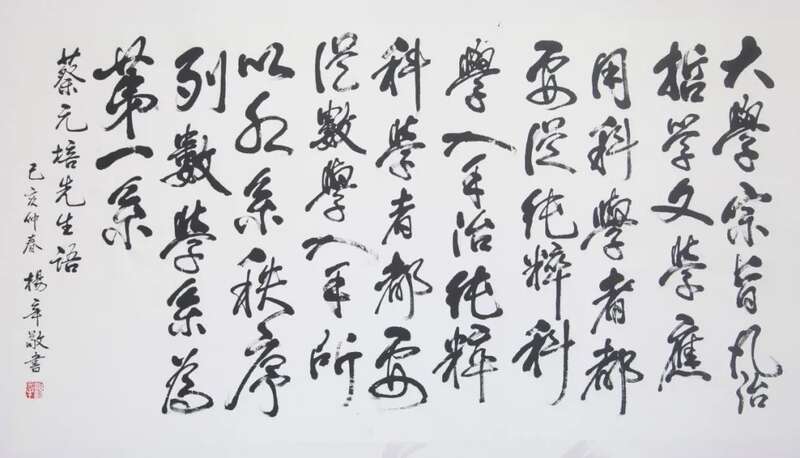 大學宗旨凡治
哲学文學應
用科學者都
要從純粹科
學入手治純粹
科學者都要
從數學入手所
以各系秩序
列數學系為
第一系
蔡元培先生語
己亥仲春 楊辛敬書